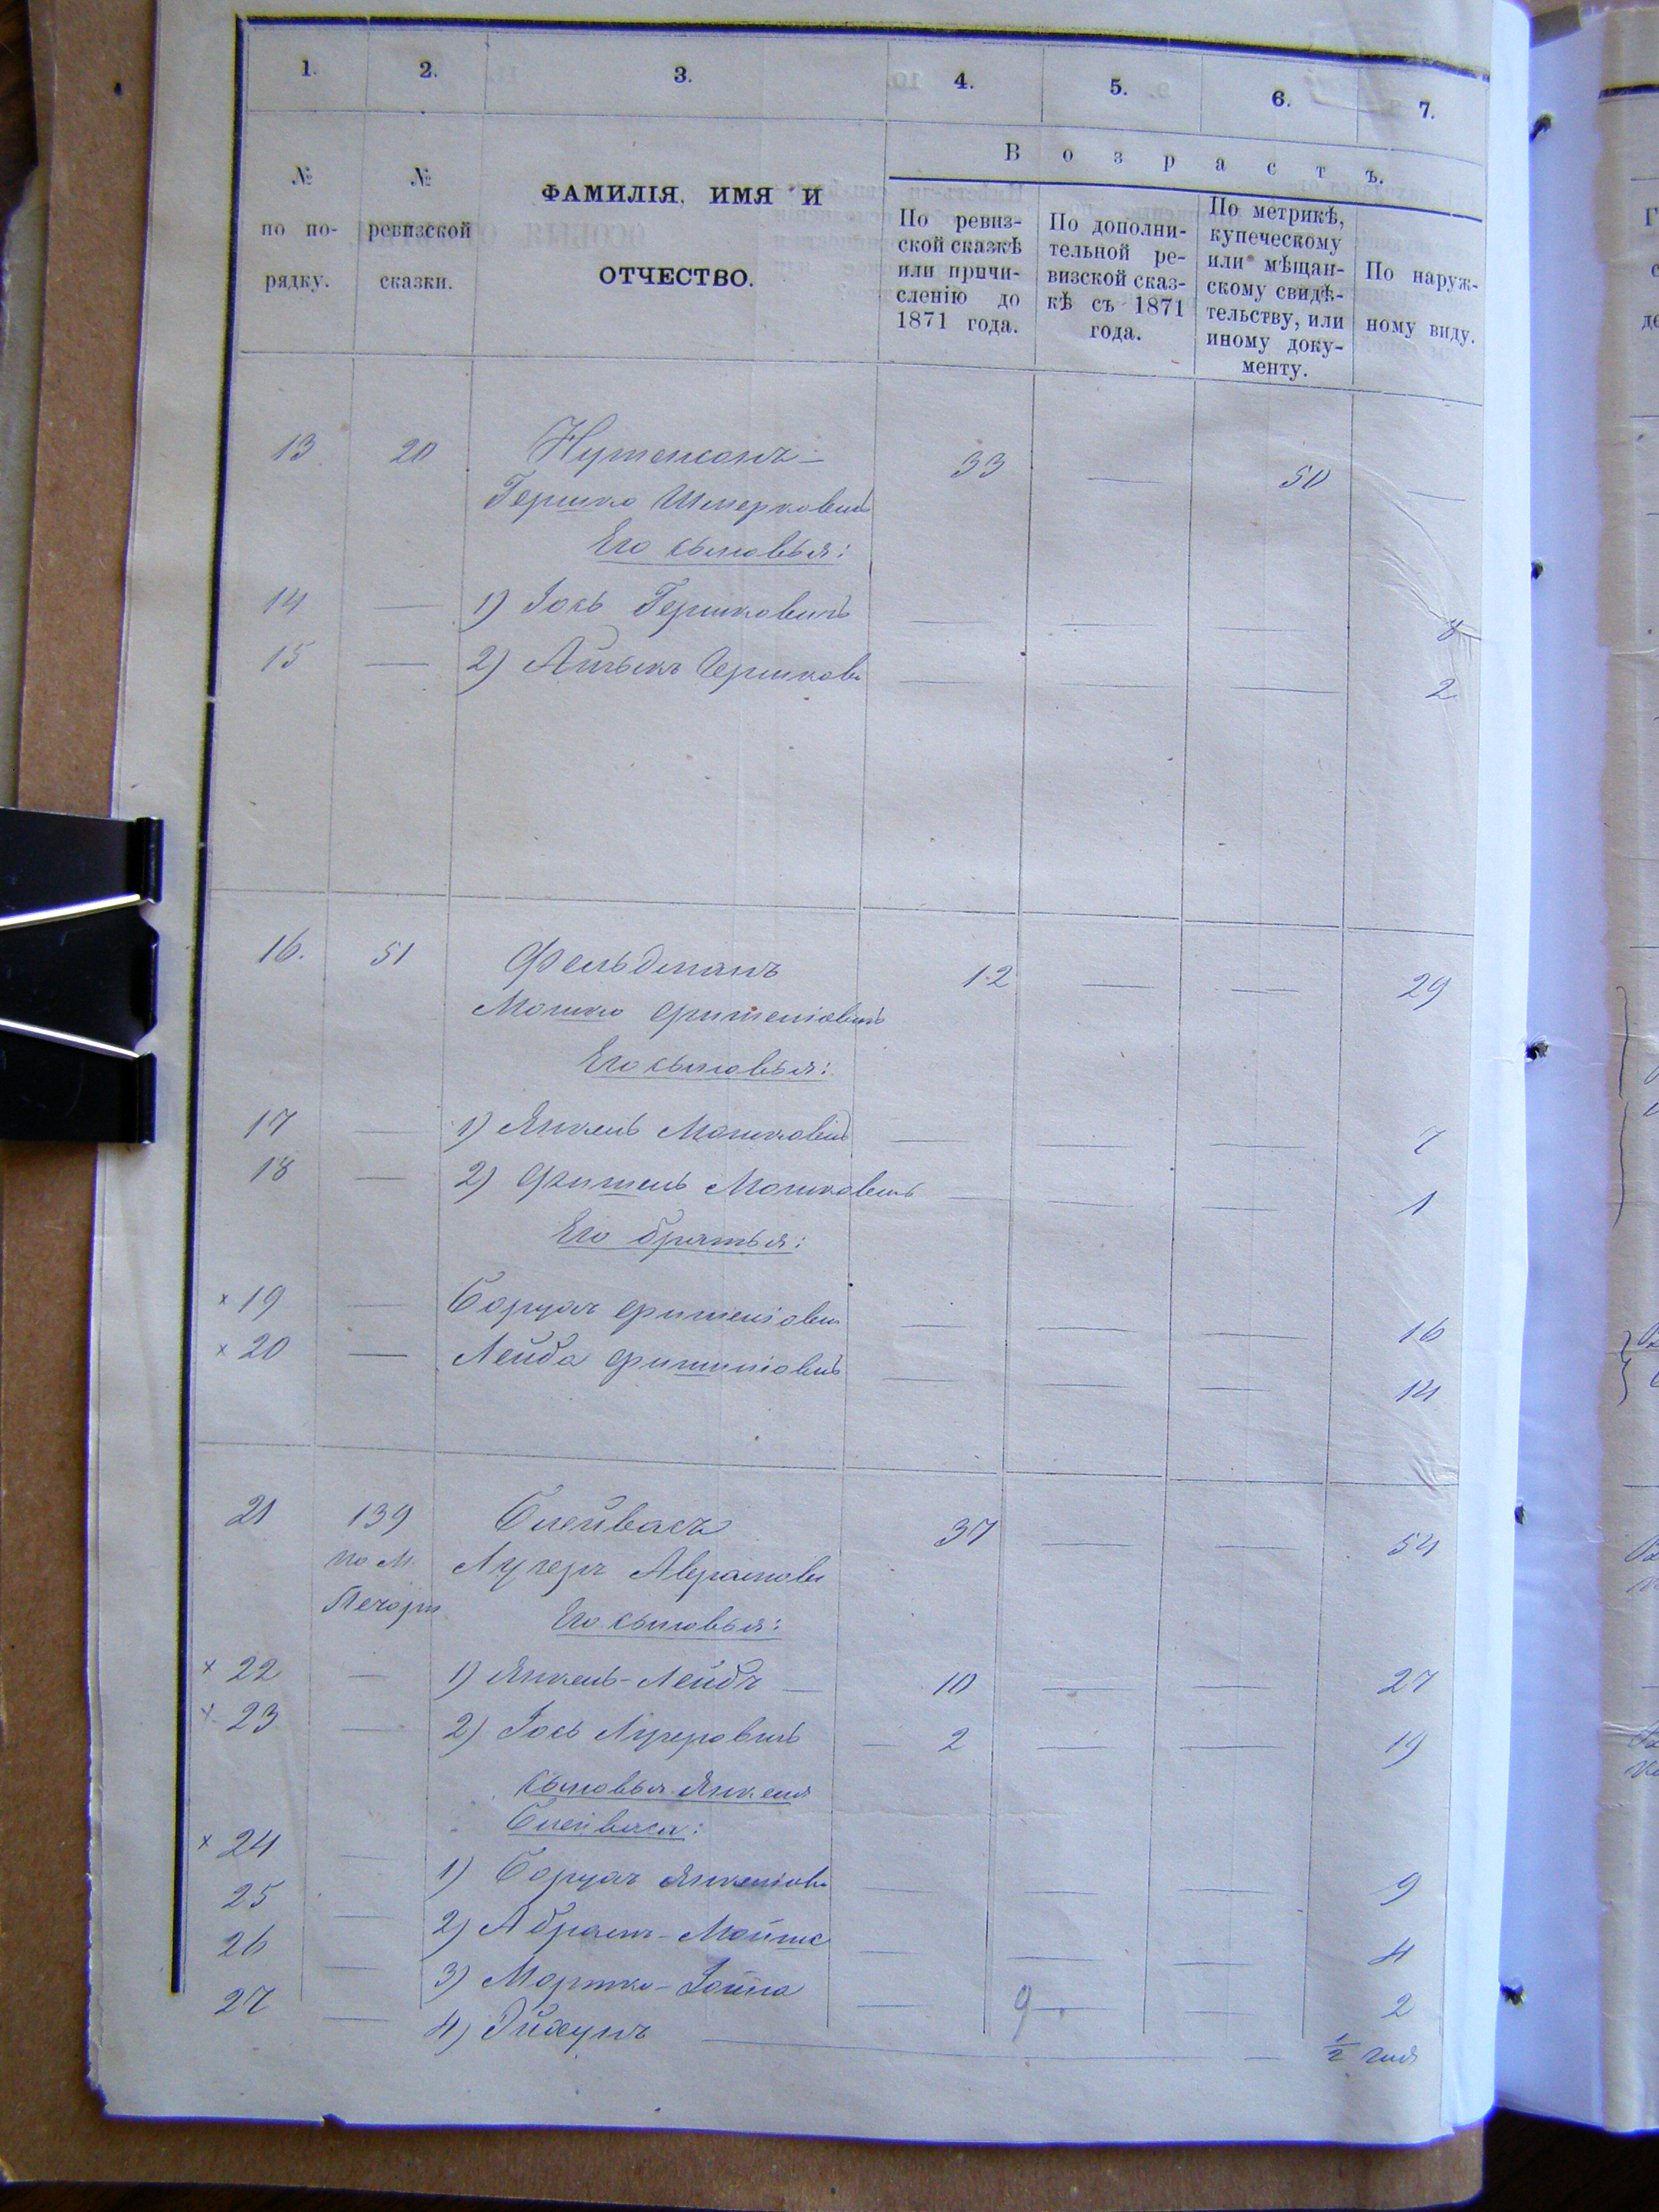 1. 2. 3. 4. 5. 6. 7.
№ по по-рядку.
№ ревизской сказки.
ФАМИЛІЯ, ИМЯ И
ОТЧЕСТВО.
В о з р а с т ъ.
По ревиз-
ской сказкѣ
или причи-
сленію до
1871 года.
По дополни-
тельной ре-
визской сказ-
кѣ съ 1871
года.
По метрикѣ,
купеческому
или мѣщан-
скому свидѣ-
тельству, или
иному доку-
менту.
По наруж-
ному виду.
13 20 33 — 50 —
Гершко Шмерковичъ
Его сыновья:
14 — 1) Іось Гершковичъ — — — 8
15 — 2) Айзыкъ Гершков — — — 2
16. 51 Фельдманъ 12 — — 29
Мошко Фишеліовичъ
Его сыновья:
17 — 1) Янкель Мошковичъ — — — 7
18 — 2) Фишель Мошковичъ — — — 1
Его братья:
× 19 — Борухъ Фишеліов — — — 16
× 20 — Лейба Фишеліовичъ — — — 14
21 139 Блейвасъ 37 — — 54
по м. Лузеръ Аврамов
Печоры
Его сыновья:
× 22 — 1) Янкель-Лейбъ — 10 — — 27
× 23 — 2) Іось Лузеровичъ — 2 — — 19
сыновья Янкеля
Блейваса:
× 24 — 1) Борухъ Янкеліов — — — 9
25 — 2) Абрамъ-Мойше — — — 4
26 — 3) Мортко-Іойна — 9 — — 2
27 — 4) — — ½ года